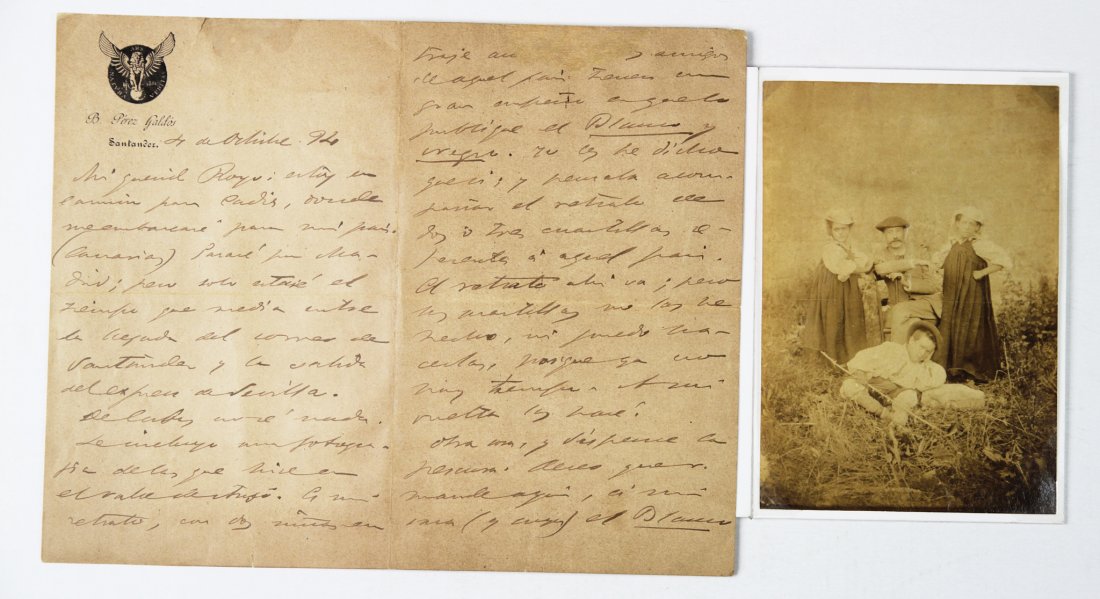 B. Pérez Galdós
Santander. 4 de Octubre 94
Mi querido Royo: estoy en
camino para Cadiz, donde
me embarcaré para mi pais.
(Canarias) Pasaré por Ma-
drid; pero solo estaré el
tiempo que media entre
la llegada del correo de
Santander y la salida
del expres de Sevilla.
De Cuba
Le incluyo una fotogra-
fia de las que hice en
el valle de Ansó. Es mi
retrato, con dos niñas en
traje an y amigos
de aquel pais tienen un
gran empeño en que lo
publique el Blanco y
negro. Yo les he dicho
que si; y pensaba acom-
pañar el retrato de
dos ó tres cuartillas re-
ferentes á aquel pais.
El retrato ahi va; pero
las cuartillas no las he
hecho, ni puedo ha-
cerlas, porque ya no
hay tiempo. A mi
vuelta las haré.
Otra cosa, y dispense la
Deseo que me
mande aqui, á mi
casa (y suya) el Blanco